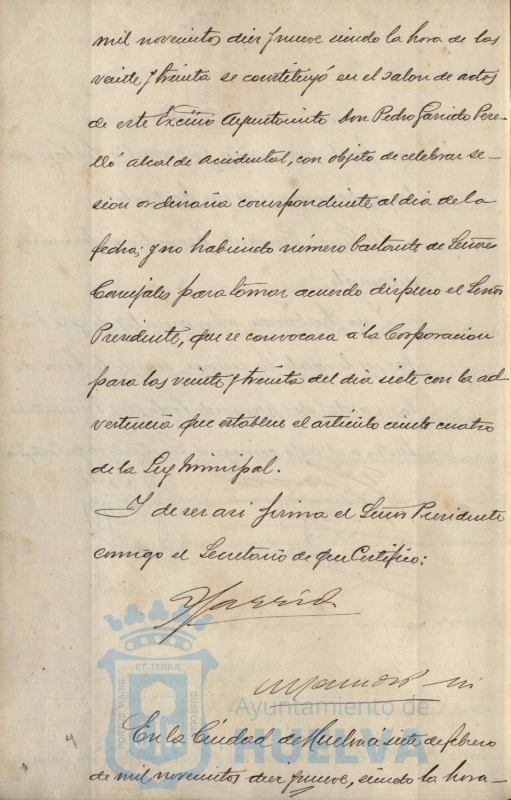 mil novecintos diez y nueve siendo la hora de las
veinte y treinta se constituyó en el salon de actos
de este Excmo Ayuntamiento Don Pedro Garrido Pere-
lló alcalde accidental, con objeto de celebrar se-
sion ordinaria correspondiente al dia de la
fecha; y no habiendo número bastante de Señores
Concejales para tomar acuerdo dispuso el Señor
Presidente, que se convocara a la Corporacion
para las veinte y treinta del dia siete con la ad-
vertencia que establece el articulo ciento cuatro
de la Ley Municipal.
Y de ser asi firma el Señor Presidente
conmigo el Secretario de que Certifico:
Garrido
ET TERRÆ
PORTUS MARIS
CUSTODIA
Ayuntamiento de
HUELVA
En la Ciudad de Huelva a siete de febrero
de mil novecintos diez y nueve, siendo la hora-